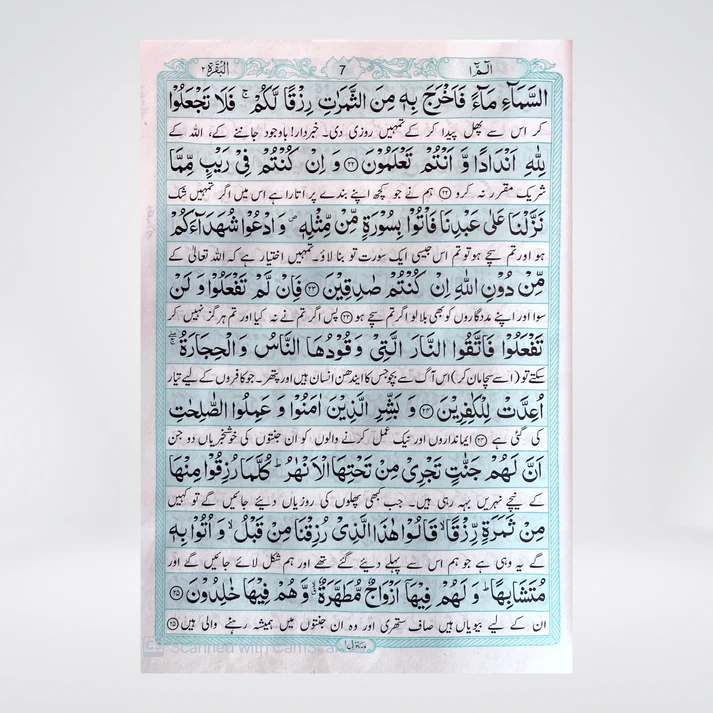 الٓمّٓ ١
7
اَلْبَقَرَة ٢
السَّمَآءِ مَآءً فَاَخْرَجَ بِهٖ مِنَ الثَّمَرٰتِ رِزْقًا لَّكُمْ ۚ فَلَا تَجْعَلُوْا
کر اس سے پھل پیدا کر کے تمہیں روزی دی۔ خبردار! باوجود جاننے کے، اللہ کے
لِلّٰهِ اَنْدَادًا وَّ اَنْتُمْ تَعْلَمُوْنَ ﴿٢٢﴾ وَ اِنْ كُنْتُمْ فِيْ رَيْبٍ مِّمَّا
شریک مقرر نہ کرو ﴿٢٢﴾ ہم نے جو کچھ اپنے بندے پر اتارا ہے اس میں اگر تمہیں شک
نَزَّلْنَا عَلٰى عَبْدِنَا فَاْتُوْا بِسُوْرَةٍ مِّنْ مِّثْلِهٖ ۪ وَ ادْعُوْا شُهَدَآءَكُمْ
ہو اور تم سچے ہو تو تم اس جیسی ایک سورت تو بنا لاؤ۔ تمہیں اختیار ہے کہ اللہ تعالیٰ کے
مِّنْ دُوْنِ اللّٰهِ اِنْ كُنْتُمْ صٰدِقِيْنَ ﴿٢٣﴾ فَاِنْ لَّمْ تَفْعَلُوْا وَ لَنْ
سوا اور اپنے مددگاروں کو بھی بلا لو اگر تم سچے ہو ﴿٢٣﴾ پس اگر تم نے نہ کیا اور تم ہرگز نہیں کر
تَفْعَلُوْا فَاتَّقُوا النَّارَ الَّتِيْ وَقُوْدُهَا النَّاسُ وَ الْحِجَارَةُ ۖۚ
سکتے تو (اسے سچا مان کر) اس آگ سے بچو جس کا ایندھن انسان ہیں اور پتھر۔ جو کافروں کے لیے تیار
اُعِدَّتْ لِلْكٰفِرِيْنَ ﴿٢٤﴾ وَ بَشِّرِ الَّذِيْنَ اٰمَنُوْا وَ عَمِلُوا الصّٰلِحٰتِ
کی گئی ہے ﴿٢٤﴾ ایمانداروں اور نیک عمل کرنے والوں کو ان جنتوں کی خوشخبریاں دو جن
اَنَّ لَهُمْ جَنّٰتٍ تَجْرِيْ مِنْ تَحْتِهَا الْاَنْهٰرُ ؕ كُلَّمَا رُزِقُوْا مِنْهَا
کے نیچے نہریں بہہ رہی ہیں۔ جب کبھی پھلوں کی روزیاں دیئے جائیں گے تو کہیں
مِنْ ثَمَرَةٍ رِّزْقًا ۙ قَالُوْا هٰذَا الَّذِيْ رُزِقْنَا مِنْ قَبْلُ ۙ وَ اُتُوْا بِهٖ
گے یہ وہی ہے جو ہم اس سے پہلے دیئے گئے تھے اور ہم شکل لائے جائیں گے اور
مُتَشَابِهًا ؕ وَ لَهُمْ فِيْهَاۤ اَزْوَاجٌ مُّطَهَّرَةٌ ۙۗ وَّ هُمْ فِيْهَا خٰلِدُوْنَ ﴿٢٥﴾
ان کے لیے بیویاں ہیں صاف ستھری اور وہ ان جنتوں میں ہمیشہ رہنے والی ہیں ﴿٢٥﴾
منزل ١
CS Scanned with CamScanner